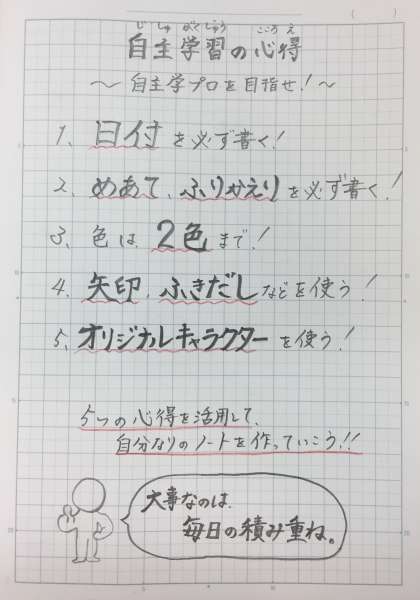 じ しゅ がくしゅう こころ え
自主学習の心得
〜自主学プロを目指せ!〜
1、日付を必ず書く!
2、めあて、ふりかえりを必ず書く!
3、色は、2色まで!
4、矢印、ふきだしなどを使う!
5、オリジナルキャラクターを使う!
5つの心得を活用して、
自分なりのノートを作っていこう!!
大事なのは、
毎日の積み重ね。